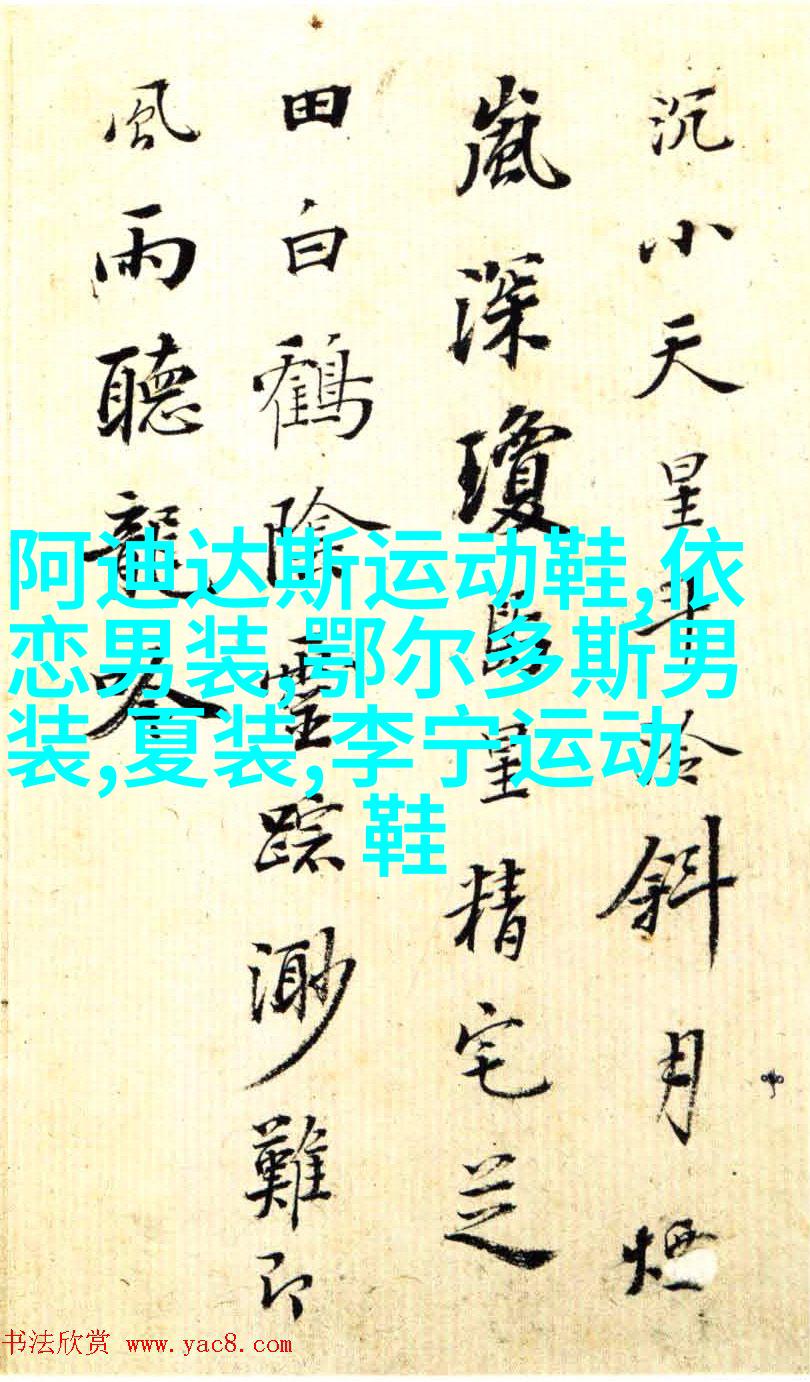 沉小天星斗冷斜月煙
嵐深瓊臥星精宅芝
田白鶴陰靈踪渺難即
風雨聽龍吟
阿迪达斯运动鞋,依
恋男装,鄂尔多斯男
装,夏装,李宁运动
鞋
书法欣赏 www.yac8.com